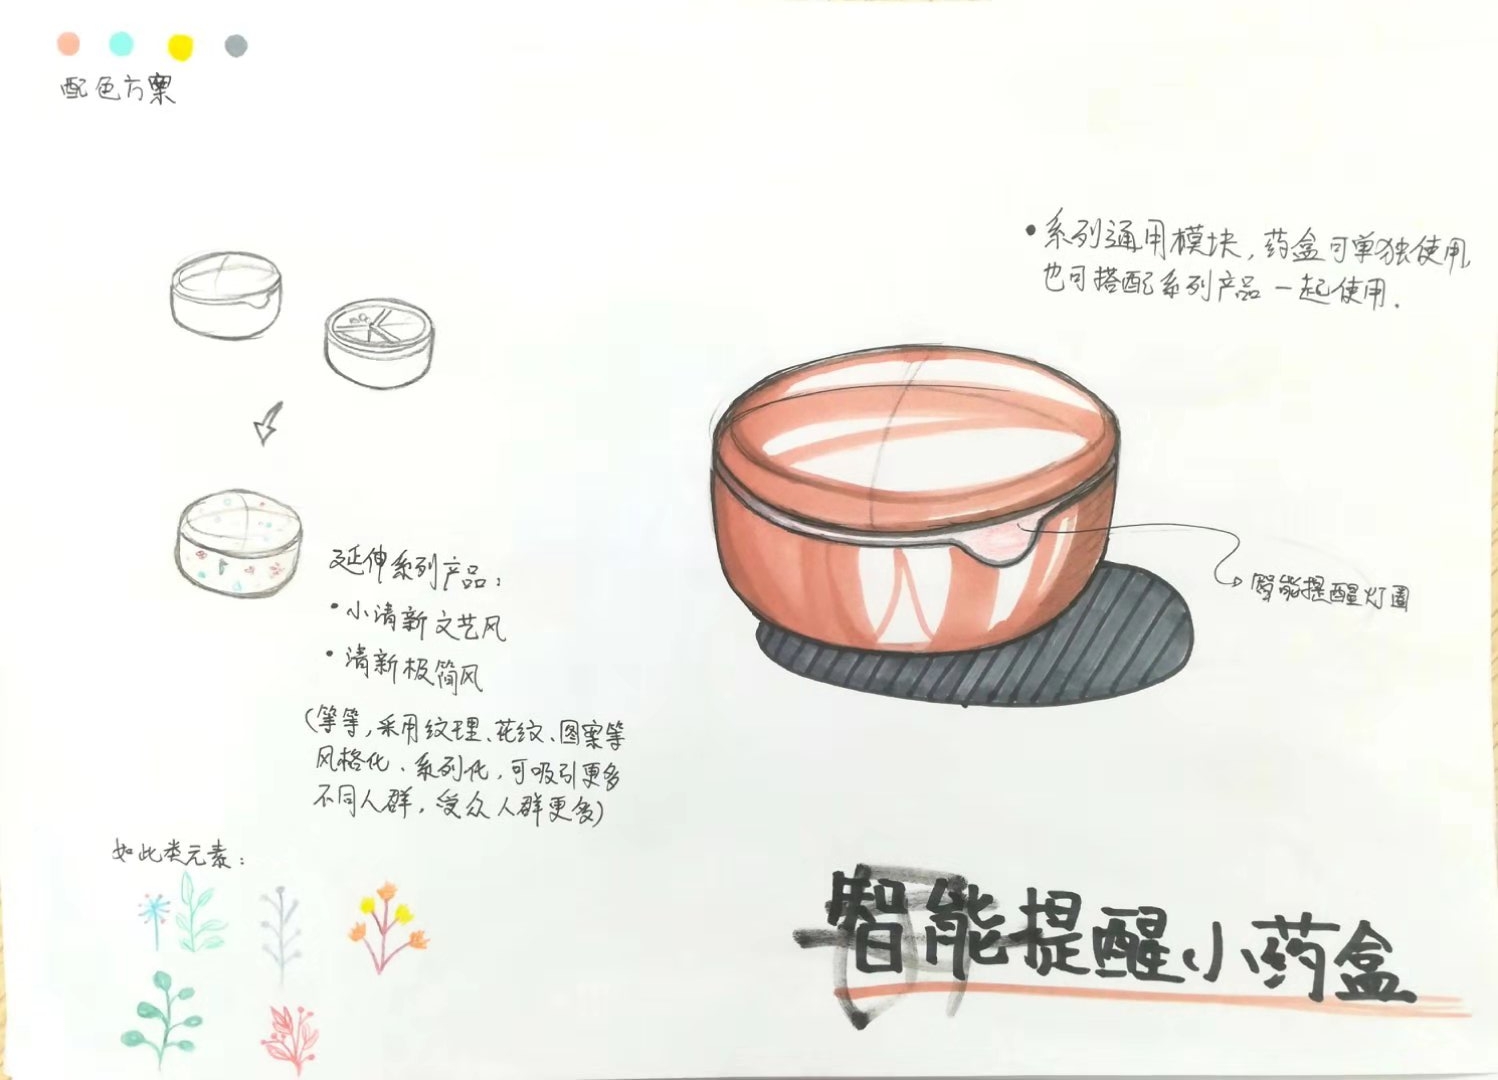 配色方案
•系列通用模块,药盒可单独使用,
也可搭配系列产品一起使用.
智能提醒灯圈
延伸系列产品:
•小清新文艺风
•清新极简风
(等等,采用纹理、花纹、图案等
风格化、系列化,可吸引更多
不同人群,受众人群更多)
如此类元素:
智能提醒小药盒